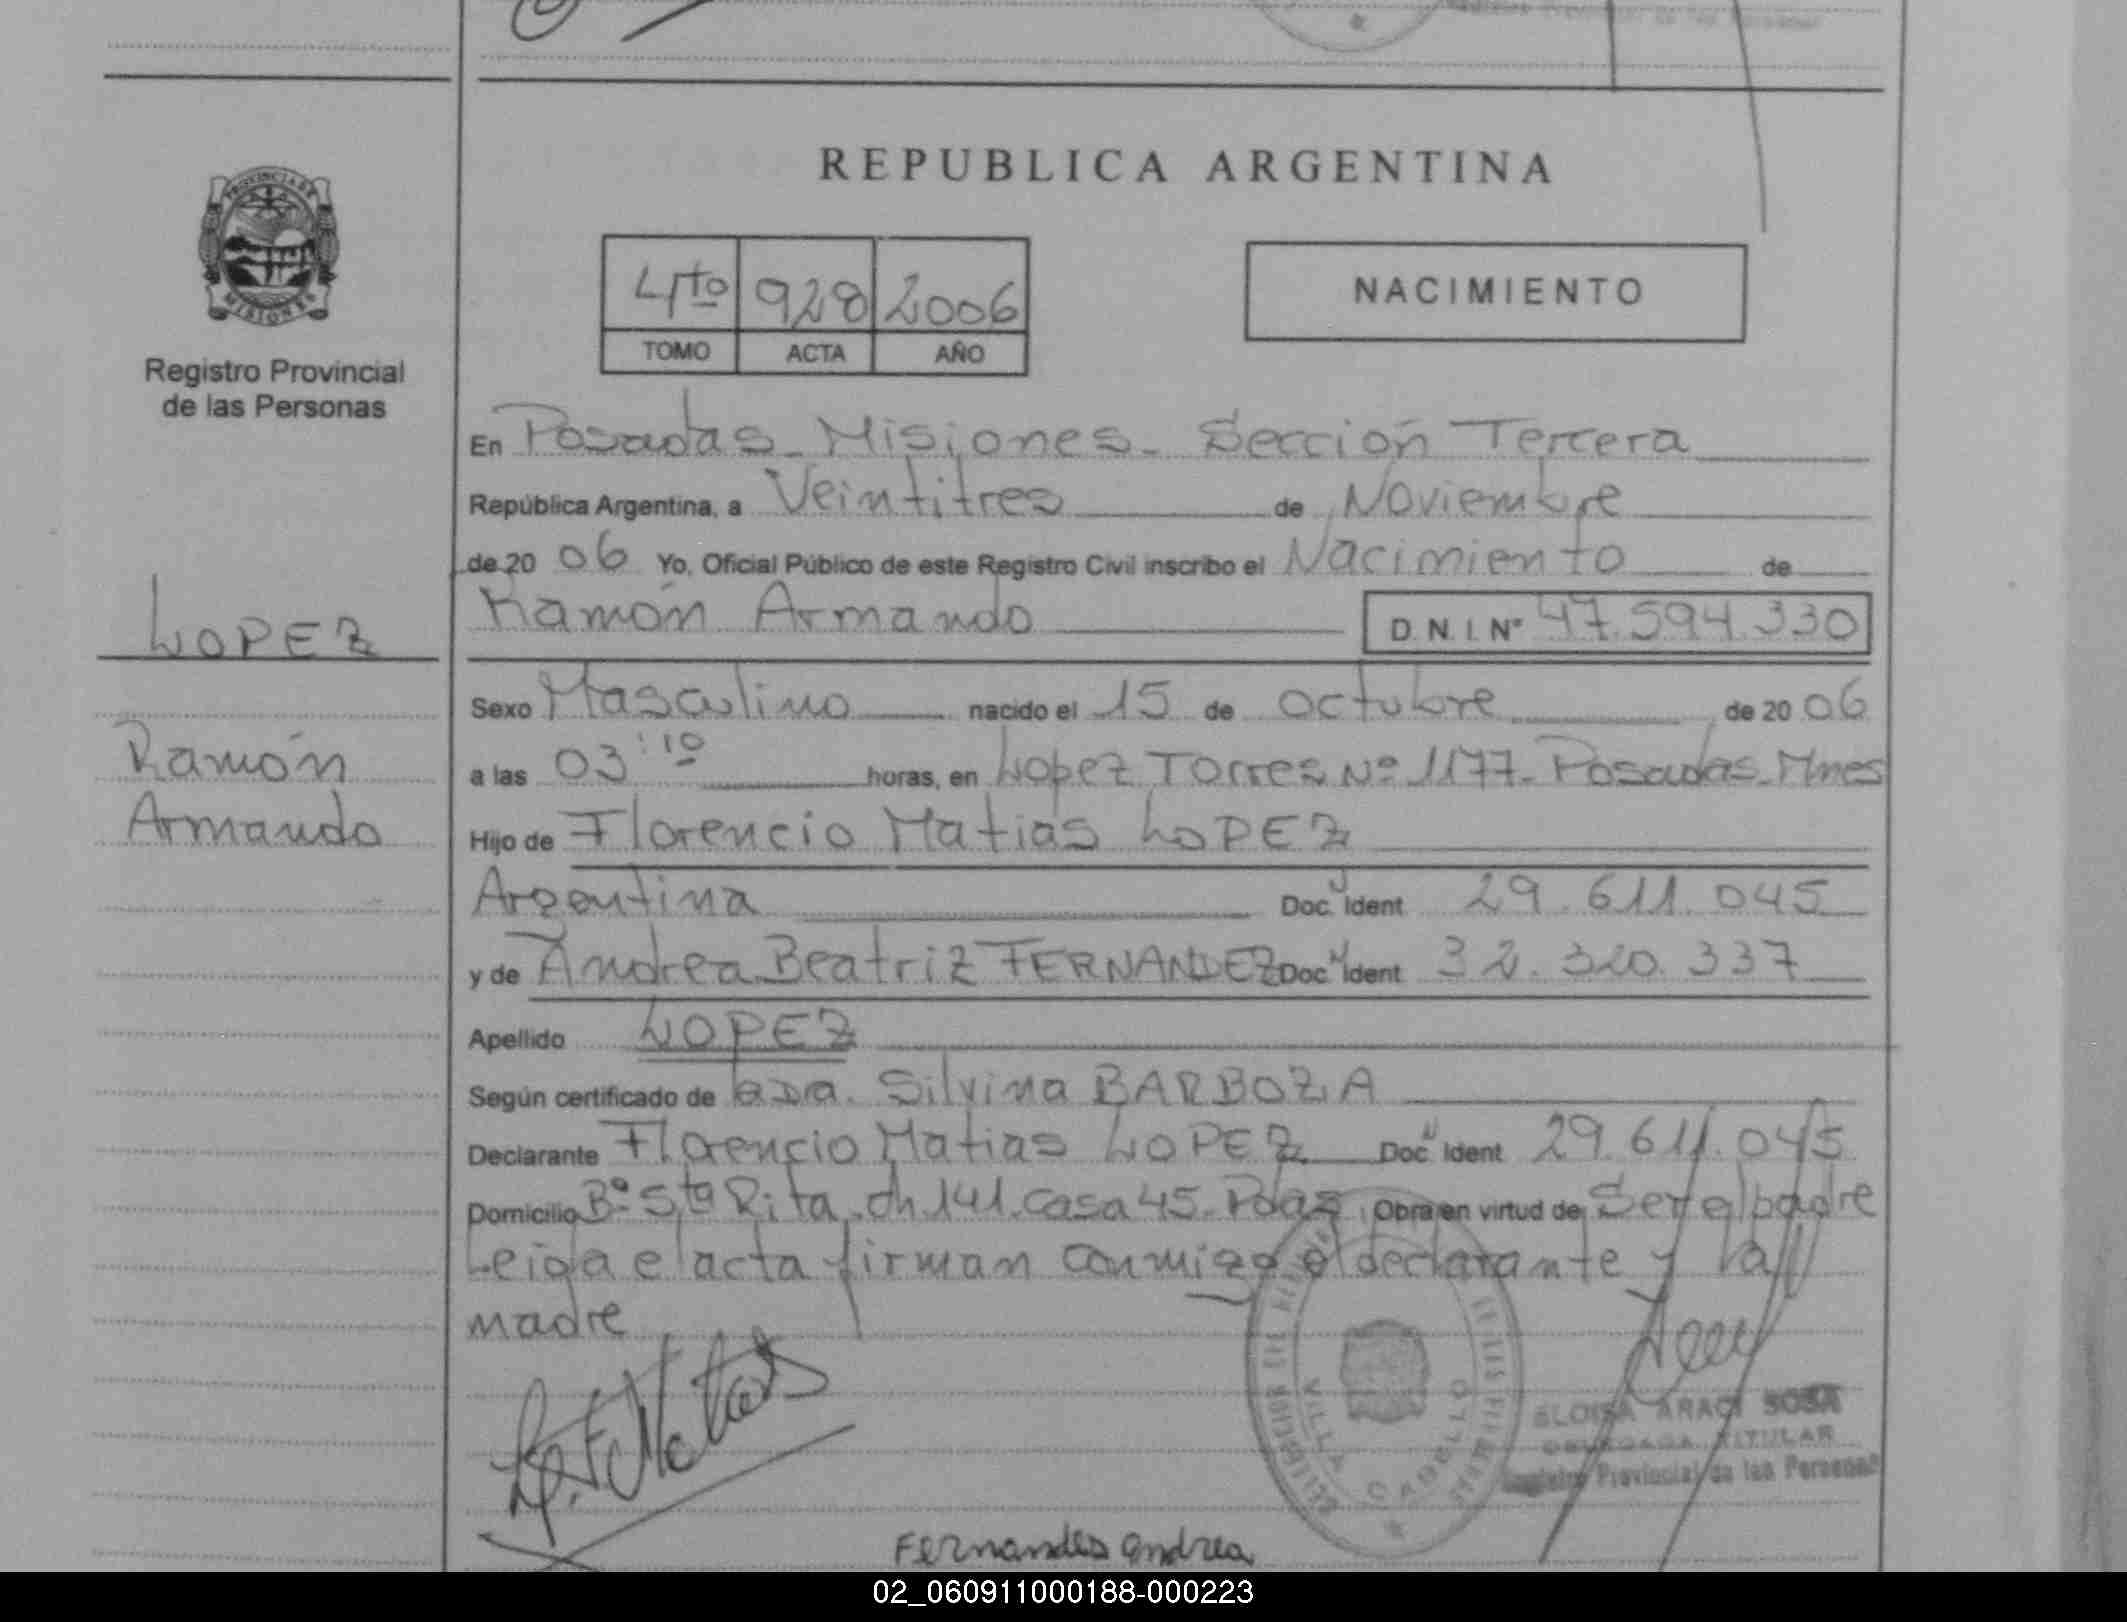 REPUBLICA ARGENTINA
PROVINCIA DE
MISIONES
Registro Provincial
de las Personas
4to 928 2006
TOMO ACTA AÑO
NACIMIENTO
LOPEZ
Ramón
Armando
En Posadas - Misiones - Sección Tercera
República Argentina, a Veintitres de Noviembre
de 20 06 Yo, Oficial Público de este Registro Civil inscribo el Nacimiento de
Ramón Armando D.N.I. Nº 47.594.330
Sexo Masculino nacido el 15 de octubre de 20 06
a las 03:10 horas, en Lopez Torres Nº 1177 - Posadas - Mnes
Hijo de Florencio Matías LOPEZ
Argentina Doc. Ident 29.611.045
y de Andrea Beatriz FERNANDEZ Doc. Ident 32.320.337
Apellido LOPEZ
Según certificado de Silvina BARBOZA
Declarante Florencio Matias LOPEZ Doc. Ident 29.611.045
Domicilio Bº Sta Rita. ch 141. casa 45. Pdas Obra en virtud de Ser el padre
Leida el acta firman conmigo el declarante y la
madre
VILLA CABELLO
ELOISA ARACI SOSA
DELEGADA TITULAR
Registro Provincial de las Personas
Fernandes andrea
02_060911000188-000223